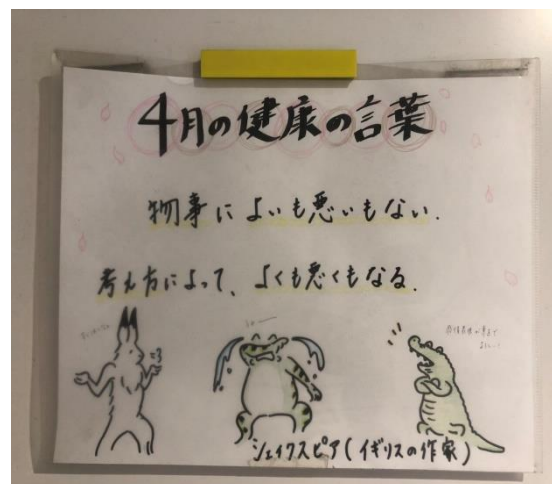 4月の健康の言葉
物事によいも悪いもない.
考え方によって、よくも悪くもなる.
シェイクスピア(イギリスの作家)